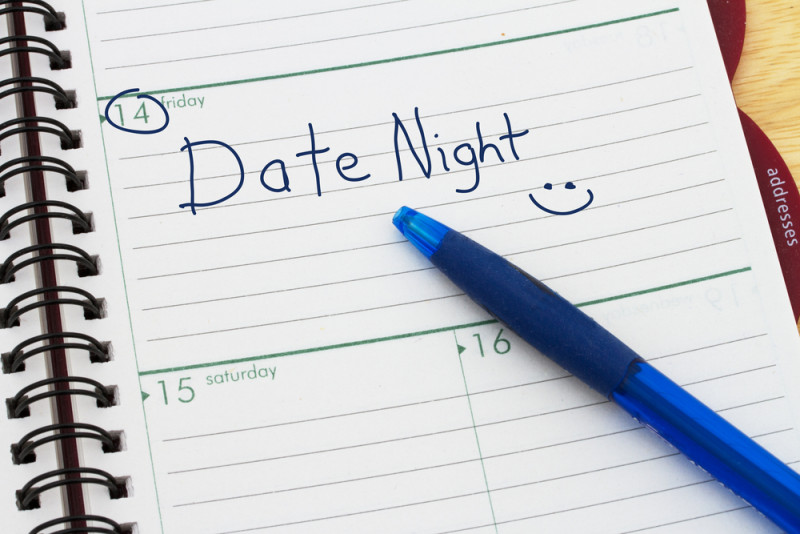 14 friday
Date Night
15 saturday
16
addresses